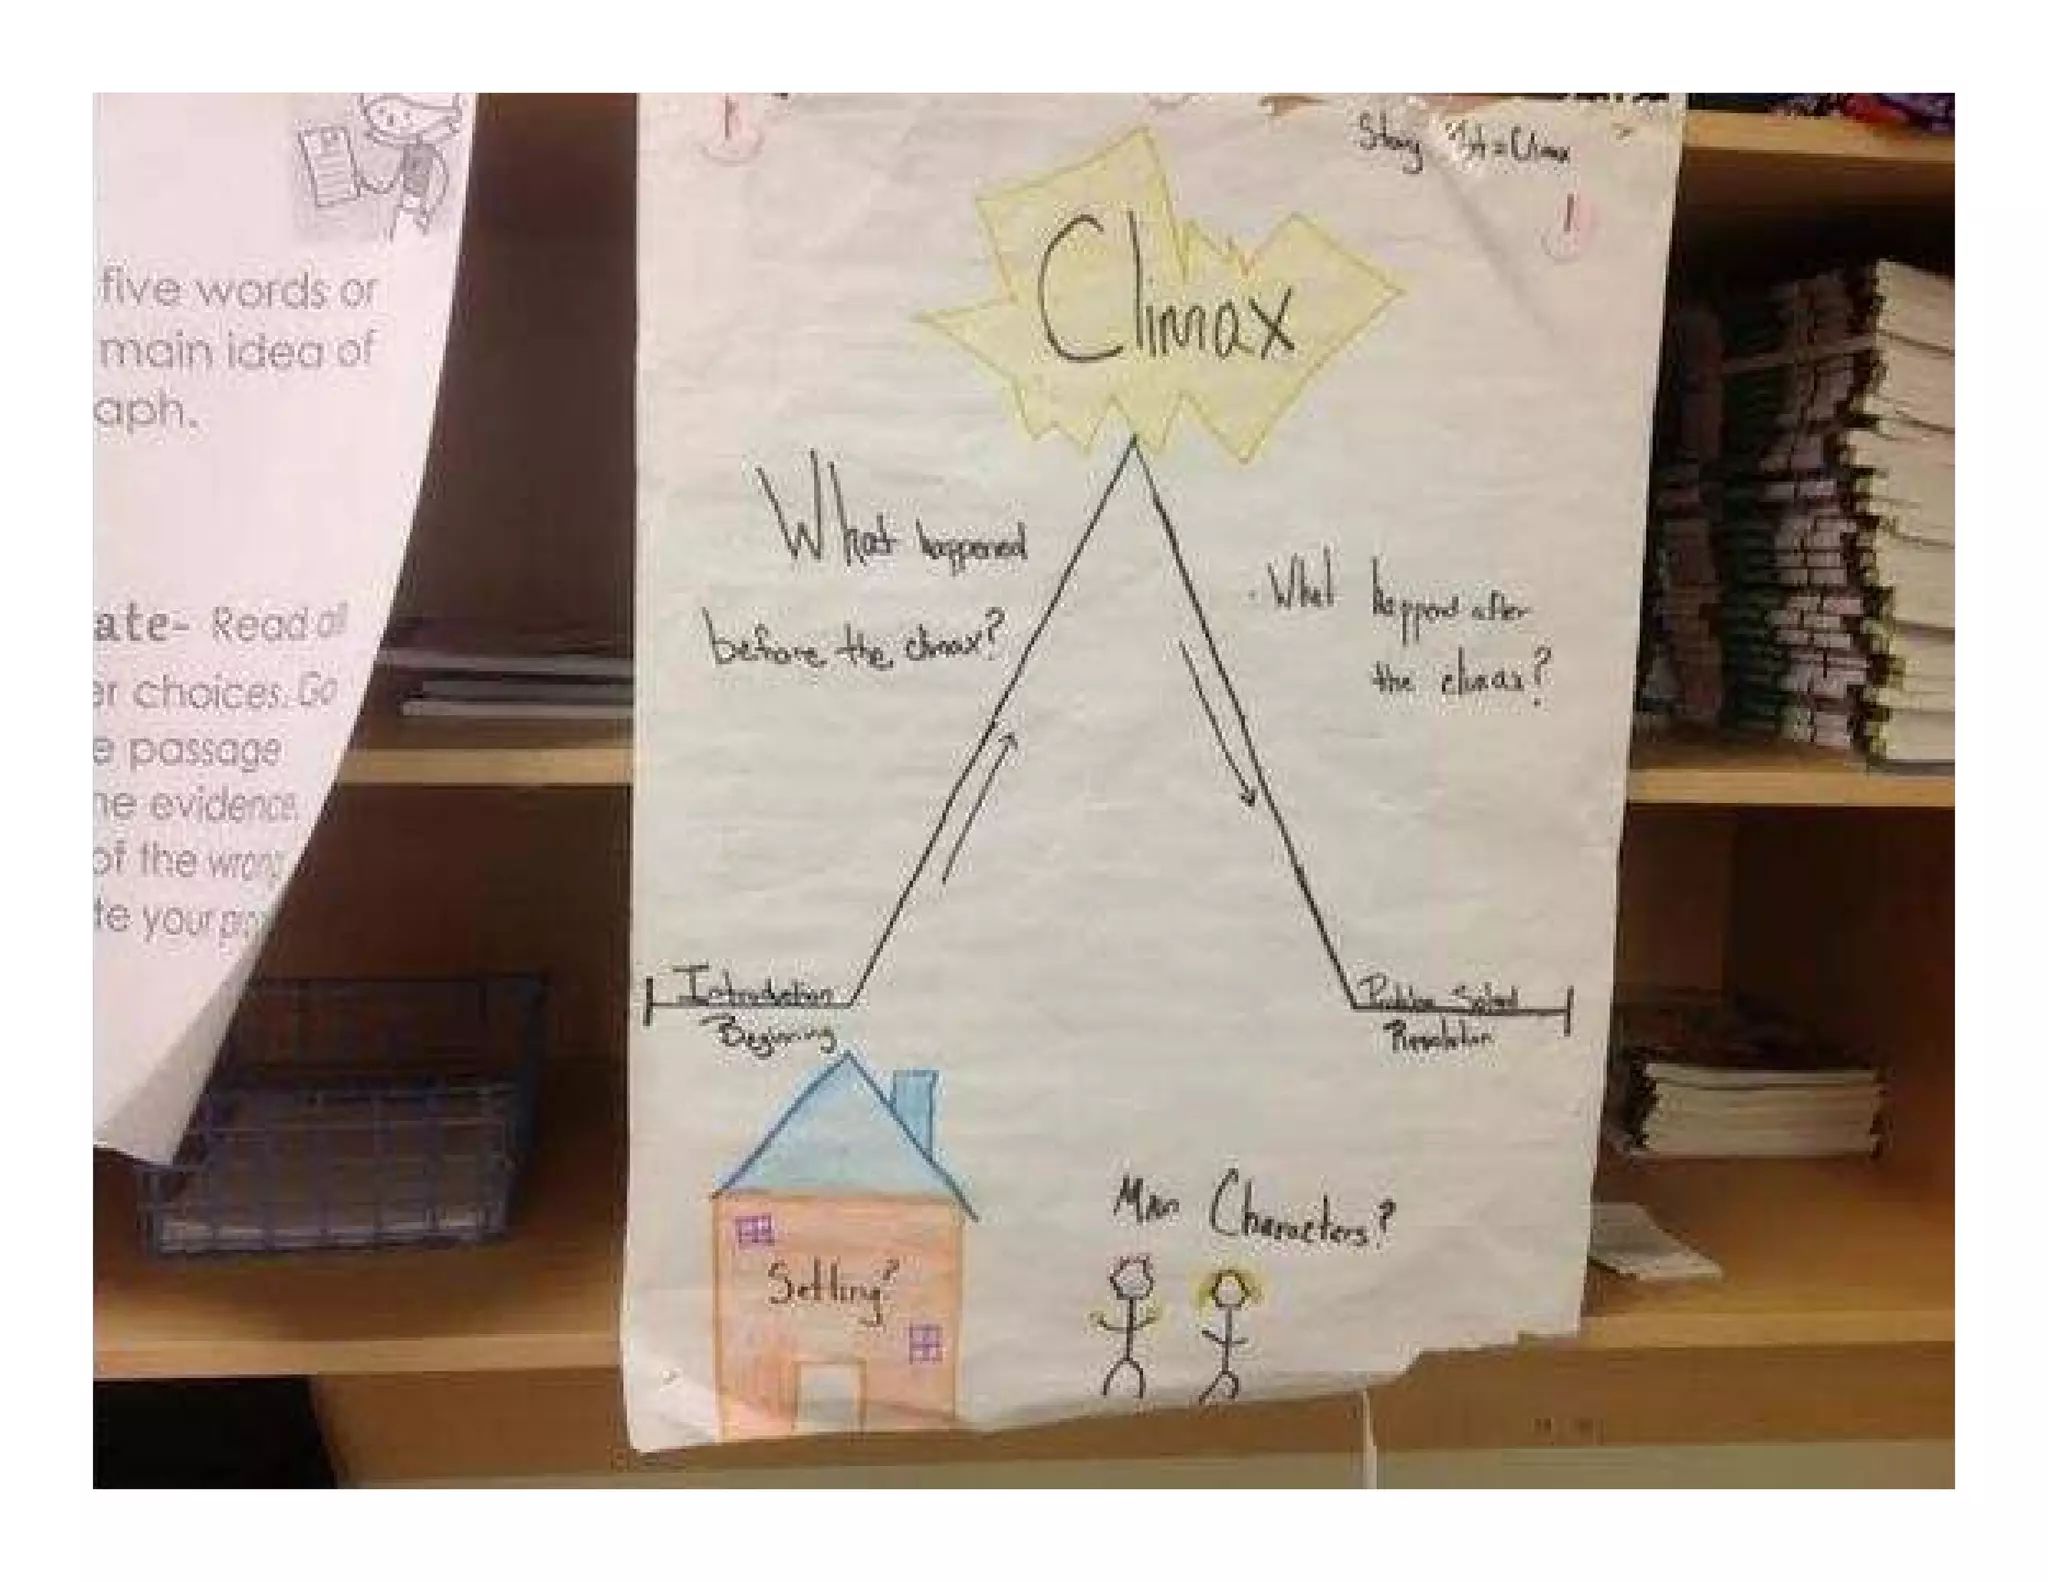 five words or
main idea of
aph.
ate- Read all
er choices. Go
e passage
he evidence.
of the wrong
te your
Story = Climax
Climax
What happened
before the climax?
What happened after
the climax?
Introduction
Beginning
Problem Solved
Resolution
Main Characters?
Setting?